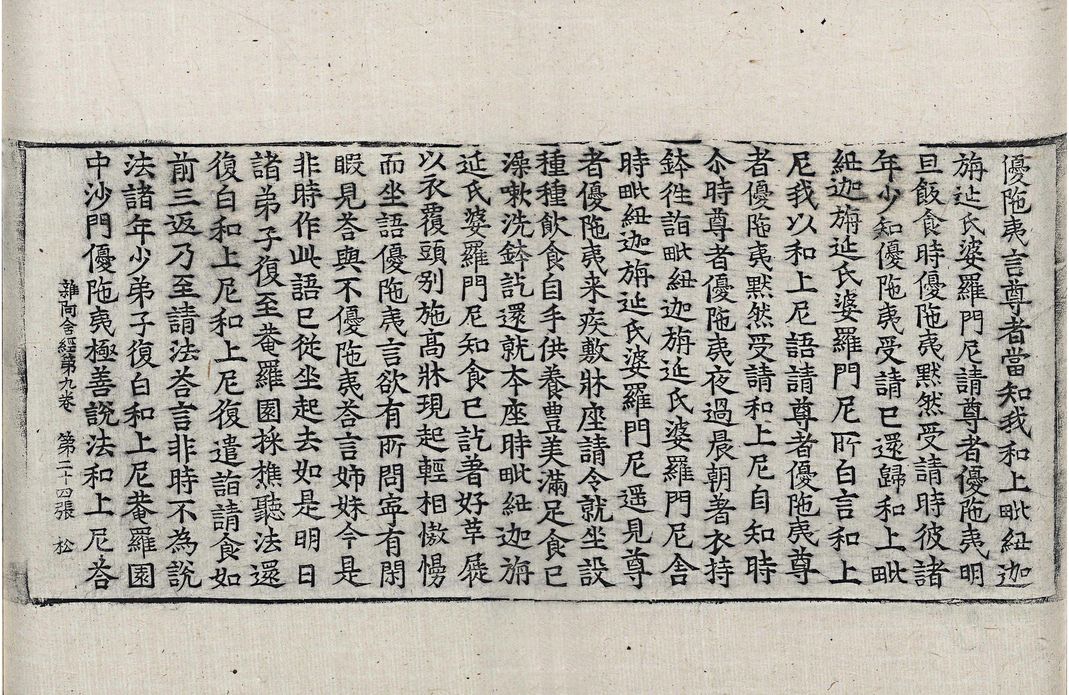 優陁夷言尊者當知我和上毗紐迦
旃延氏婆羅門尼請尊者優陁夷明
旦飯食時優陁夷默然受請時彼諸
年少知優陁夷受請已還歸和上毗
紐迦旃延氏婆羅門尼所白言和上
尼我以和上尼語請尊者優陁夷尊
者優陁夷默然受請和上尼自知時
尒時尊者優陁夷夜過晨朝著衣持
鉢往詣毗紐迦旃延氏婆羅門尼舎
時毗紐迦旃延氏婆羅門尼遥見尊
者優陁夷来疾敷牀座請令就坐設
種種飲食自手供養豊美滿足食已
澡嗽洗鉢訖還就本座時毗紐迦旃
延氏婆羅門尼知食已訖著好革屣
以衣覆頭别施高牀現起輕相慠慢
而坐語優陁夷言欲有所問寧有閑
暇見荅與不優陁夷荅言姊妹今是
非時作此語已從坐起去如是明日
諸弟子復至菴羅園採樵聽法還
復白和上尼和上尼復遣詣請食如
前三返乃至請法荅言非時不為說
法諸年少弟子復白和上尼菴羅園
中沙門優陁夷極善說法和上尼荅
雜阿含經第九卷 第二十四張 松